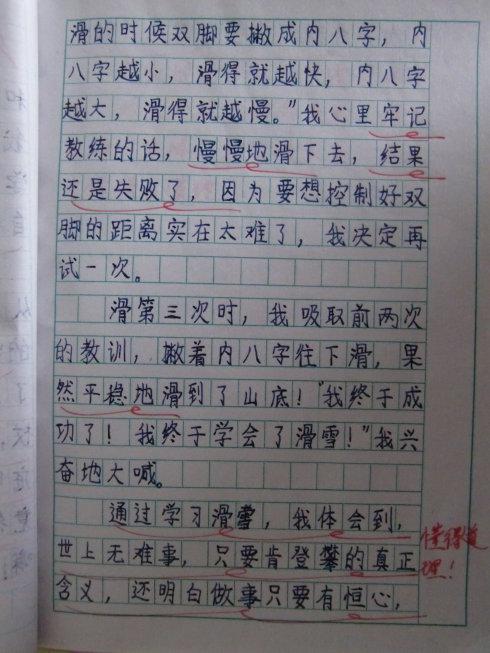 滑的时候双脚要撇成内八字，内
八字越小，滑得就越快，内八字
越大，滑得就越慢。”我心里牢记
教练的话，慢慢地滑下去，结果
还是失败了，因为要想控制好双
脚的距离实在太难了，我决定再
试一次。
滑第三次时，我吸取前两次
的教训，撇着内八字往下滑，果
然平稳地滑到了山底！“我终于成
功了！我终于学会了滑雪！”我兴
奋地大喊。
通过学习滑雪，我体会到，
世上无难事，只要肯登攀的真正
含义，还明白做事只要有恒心，
懂得道
理！